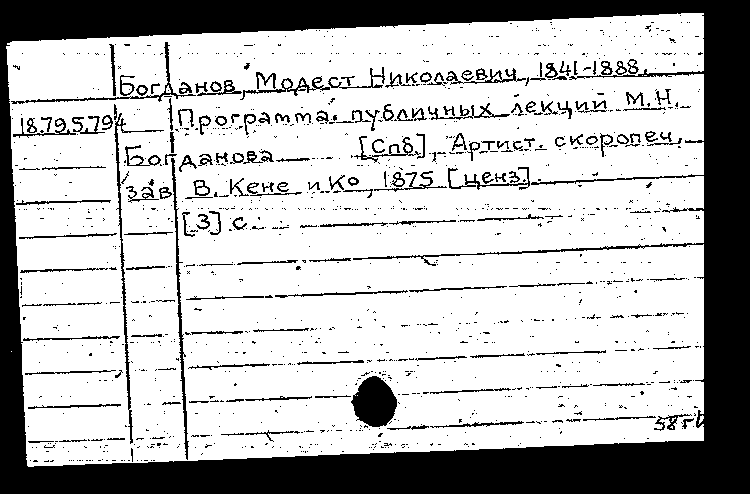 Богданов, Модест Николаевич, 1841-1888.
18.79.5.794 Программа публичных лекций М.Н.
Богданова [Спб.], Артист. скоропеч.
Зав В. Кене и Ко, 1875 [ценз].
[3] с.